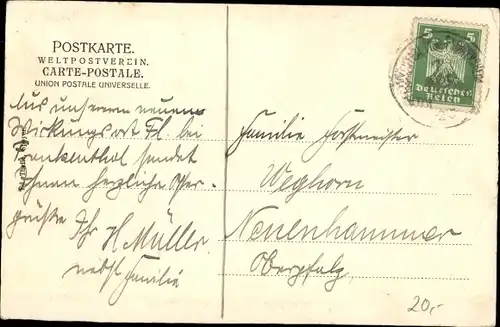 POSTKARTE.
WELTPOSTVEREIN.
CARTE-POSTALE.
UNION POSTALE UNIVERSELLE.
Aus unserem neuen
Wirkungsort Fl. bei
Frankenthal sendet
Ihnen herzliche Oster-
grüße Ihr H Müller.
nebst Familie
5 5
Deutsches
Reich
Familie Forstmeister
Weghorn
Neuenhammer
Oberpfalz.
20,-